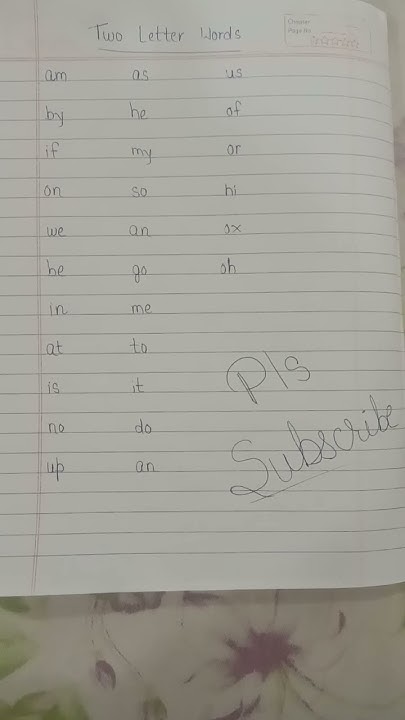 Two Letter Words
Chapter
Page No
am as us
by he of
if my or
on so hi
we an ox
be go oh
in me
at to
is it
no do
up an
Pls
Subscribe